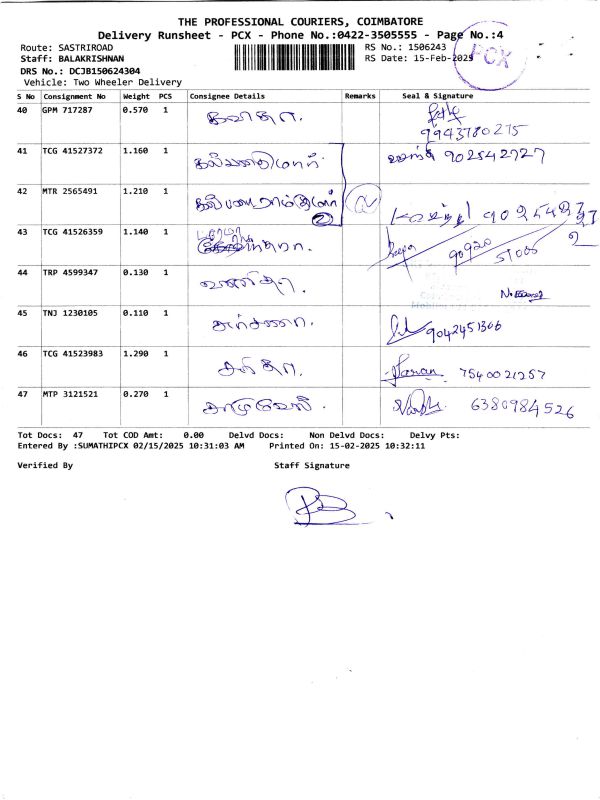 THE PROFESSIONAL COURIERS, COIMBATORE
Delivery Runsheet - PCX - Phone No.:0422-3505555 - Page No.:4
Route: SASTRIROAD
RS No.: 1506243
Staff: BALAKRISHNAN
RS Date: 15-Feb-2025
PCX
DRS No.: DCJB150624304
Vehicle: Two Wheeler Delivery
S No Consignment No Weight PCS Consignee Details Remarks Seal & Signature
40 GPM 717287 0.570 1 கவிதா.
9943780275
41 TCG 41527372 1.160 1 902542727
42 MTR 2565491 1.210 1
2
43 TCG 41526359 1.140 1
90920
51000
44 TRP 4599347 0.130 1 வனிதா.
45 TNJ 1230105 0.110 1 அர்ச்சனா. 9042451306
46 TCG 41523983 1.290 1 சரிதா. 7540021257
47 MTP 3121521 0.270 1 6380984526
Tot Docs: 47 Tot COD Amt: 0.00 Delvd Docs: Non Delvd Docs: Delvy Pts:
Entered By :SUMATHIPCX 02/15/2025 10:31:03 AM Printed On: 15-02-2025 10:32:11
Verified By Staff Signature